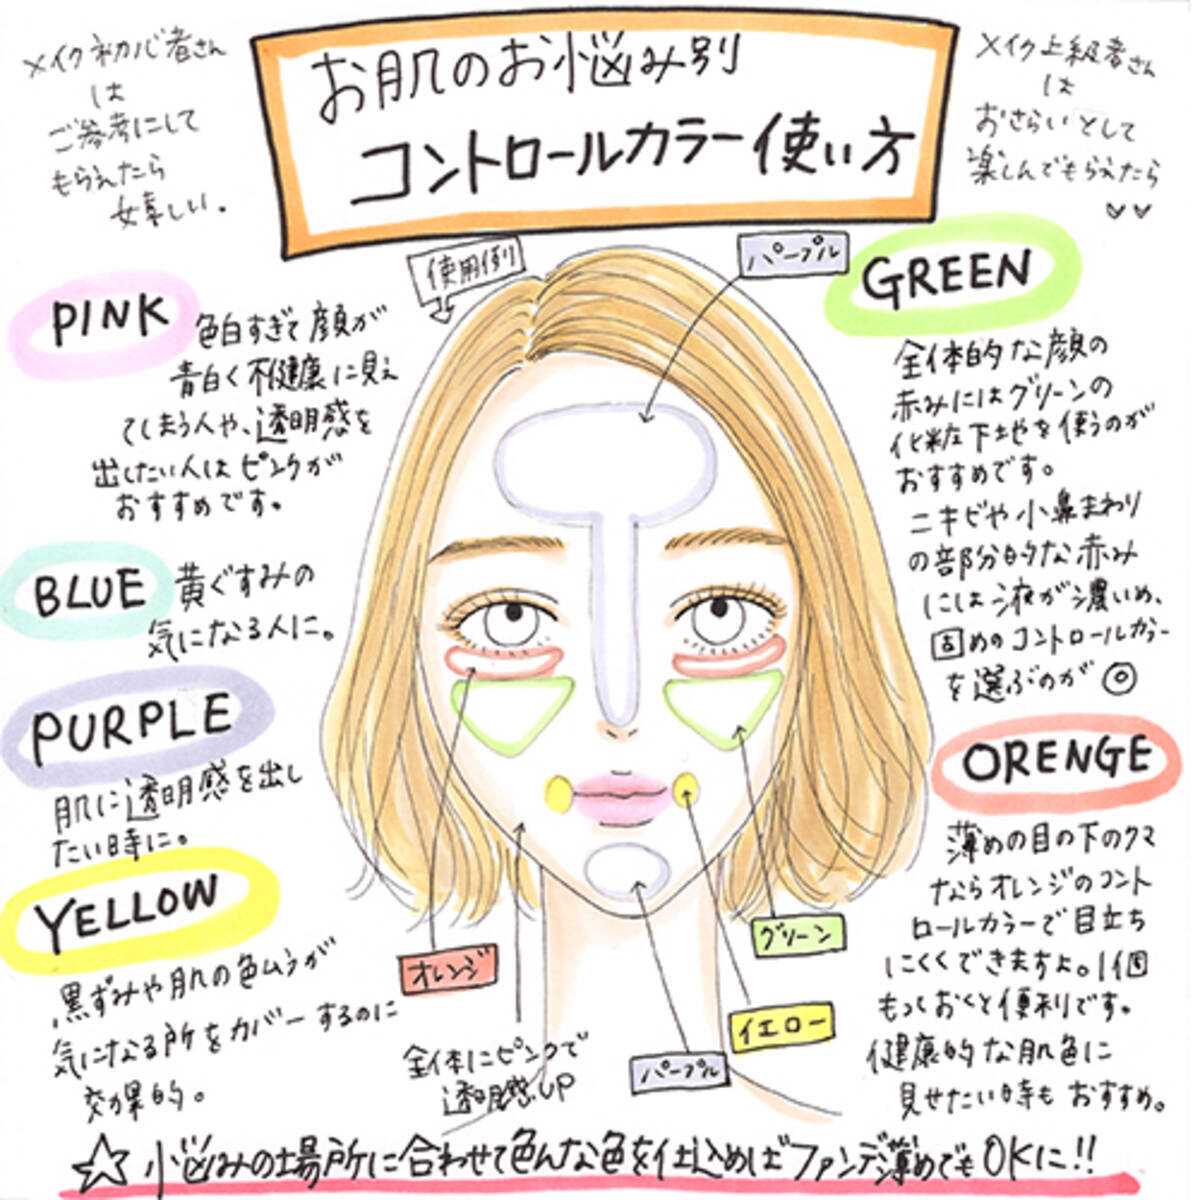 メイク初心者さん
は
ご参考にして
もらえたら
嬉しい。
お肌のお悩み別
コントロールカラー使い方
メイク上級者さん
は
おさらいとして
楽しんでもらえたら
使用例
パープル
PINK
色白すぎて顔が
青白く不健康に見え
てしまう人や、透明感を
出したい人はピンクが
おすすめです。
BLUE
黄ぐすみの
気になる人に。
PURPLE
肌に透明感を出し
たい時に。
YELLOW
黒ずみや肌の色ムラが
気になる所をカバーするのに
効果的。
GREEN
全体的な顔の
赤みにはグリーンの
化粧下地を使うのが
おすすめです。
ニキビや小鼻まわり
の部分的な赤み
には液が濃いめ、
固めのコントロールカラー
を選ぶのが◎
ORENGE
薄めの目の下のクマ
ならオレンジのコント
ロールカラーで目立ち
にくくできますよ。1個
もっておくと便利です。
健康的な肌色に
見せたい時もおすすめ。
オレンジ
グリーン
イエロー
パープル
全体にピンクで
透明感UP
☆小悩みの場所に合わせて色んな色を仕込めばファンデ薄めでもOKに!!